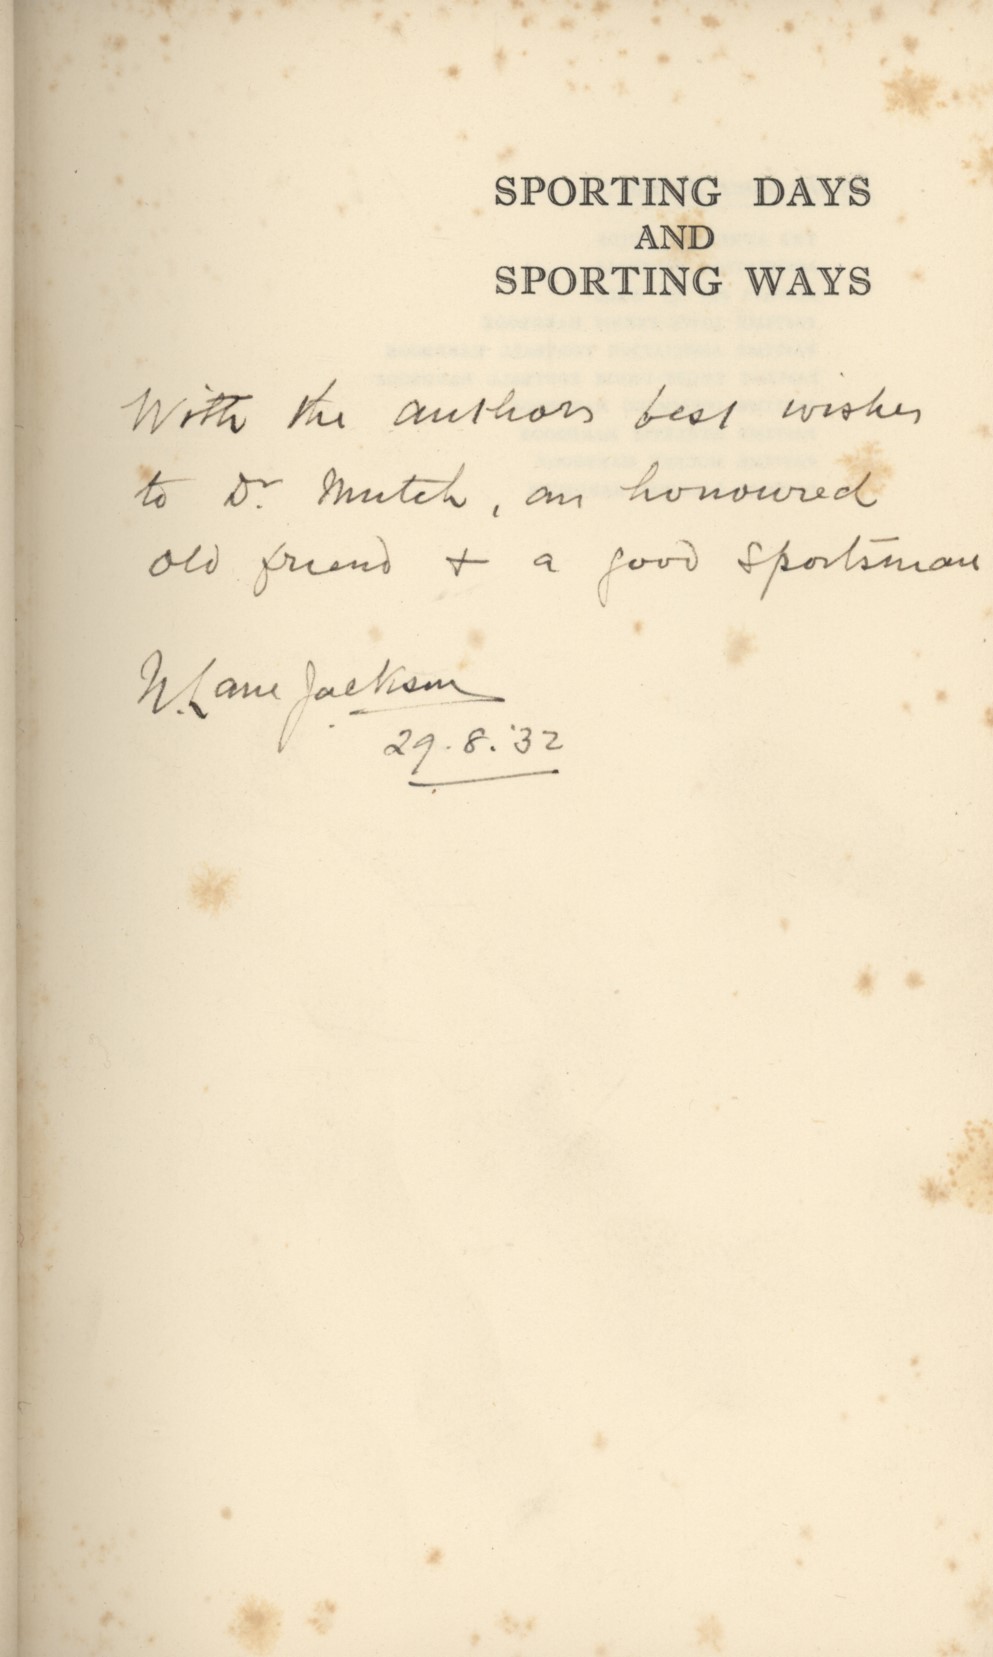 SPORTING DAYS
AND
SPORTING WAYS
With the authors best wishes
to Dr. Mutch, an honoured
old friend + a good sportsman
N. Lane Jackson
29.8.'32